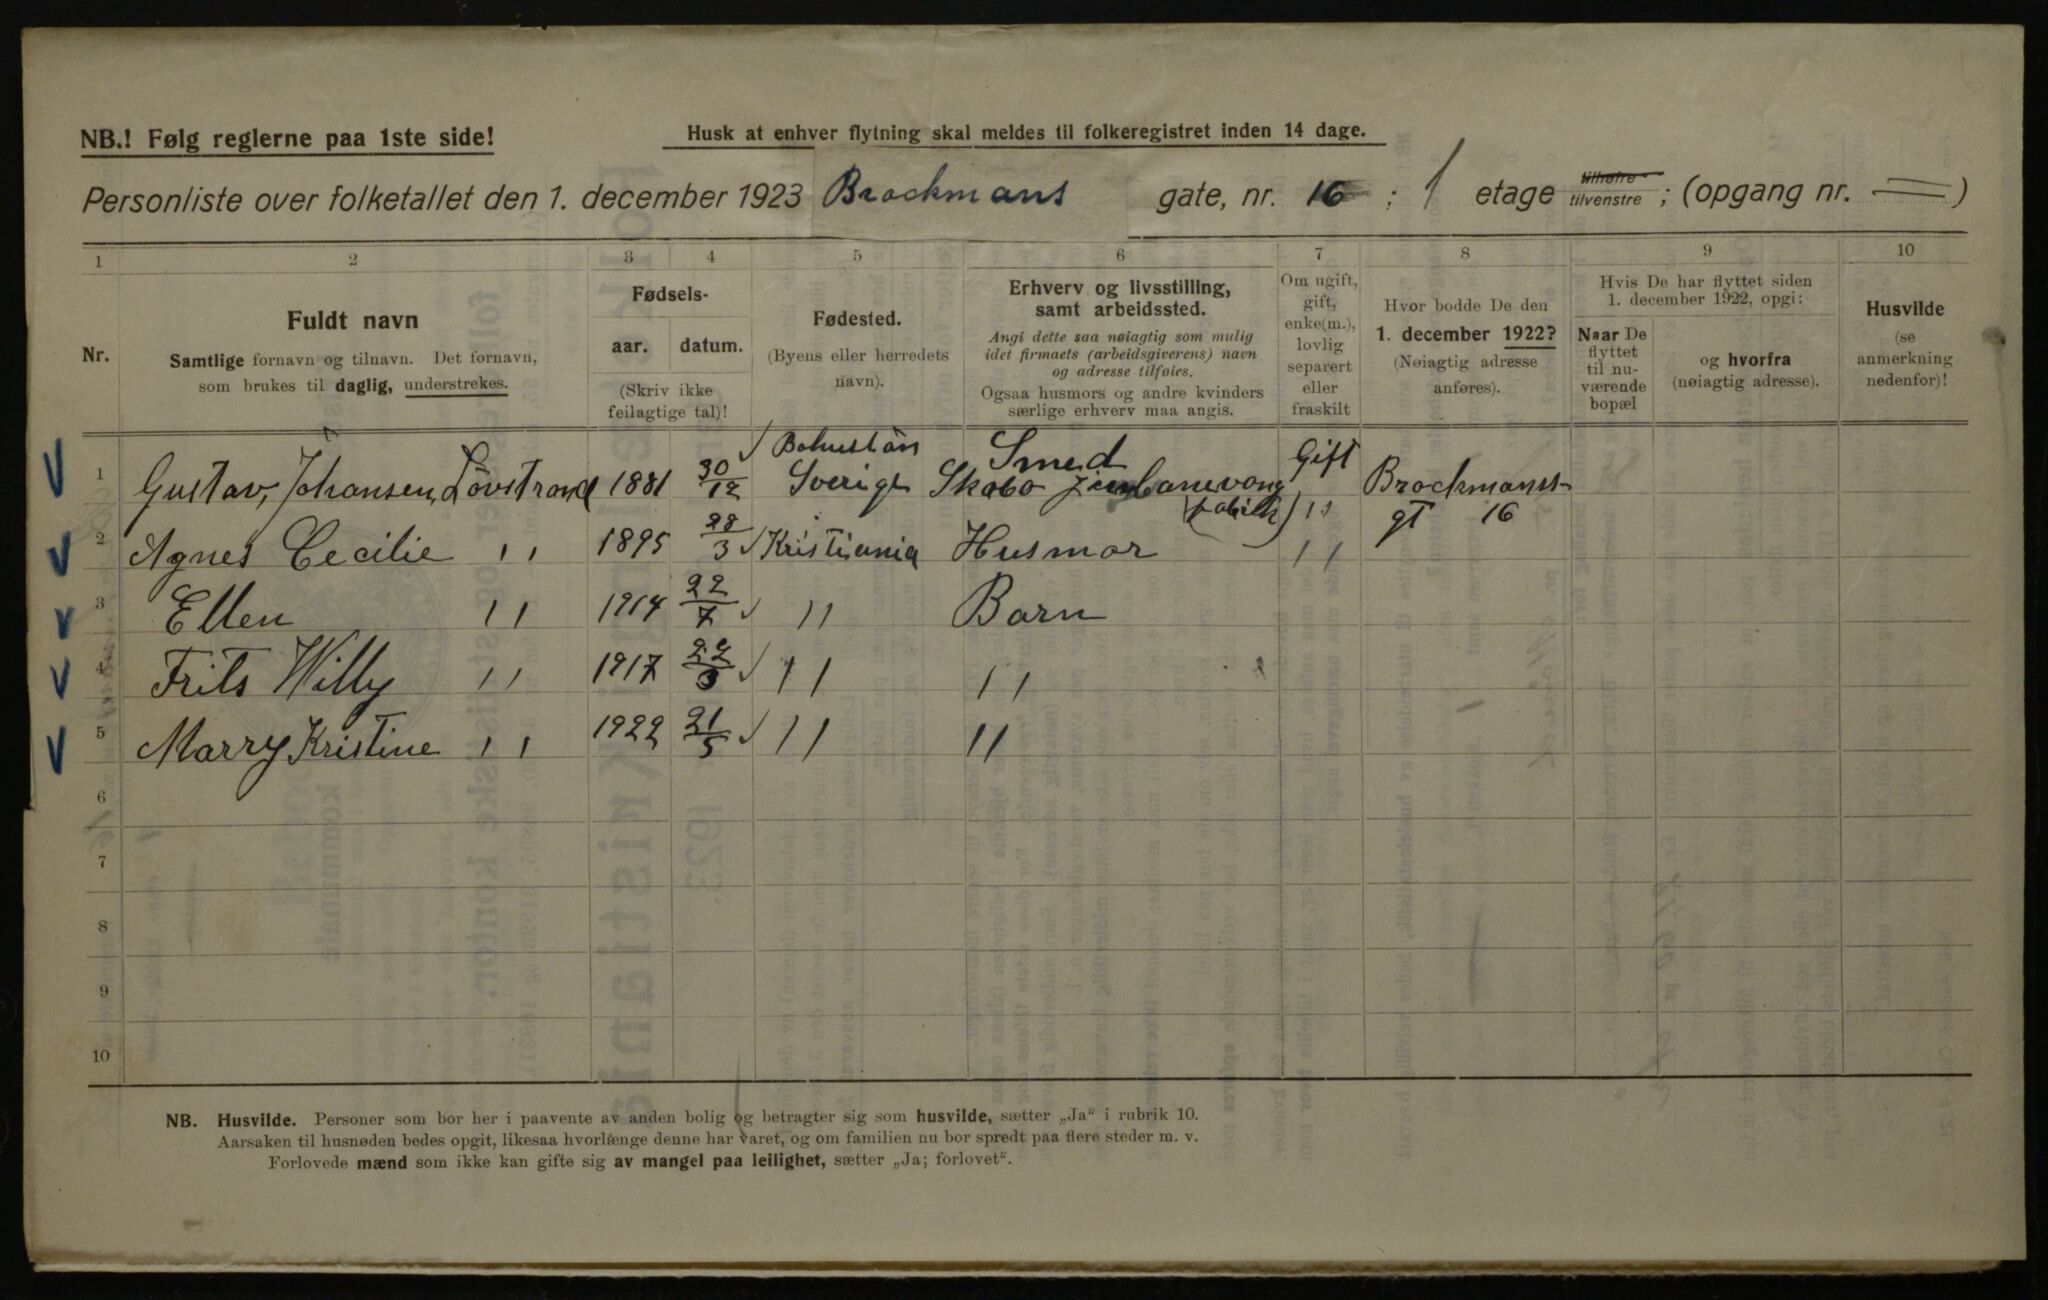 NB.! Følg reglerne paa 1ste side!
Husk at enhver flytning skal meldes til folkeregistret inden 14 dage.
Personliste over folketallet den 1. december 1923 Brockmans gate, nr. 16 ; 1 etage tilhøire tilvenstre ; (opgang nr. — )
1 2 3 4 5 6 7 8 9 10
Nr.
Fuldt navn
Samtlige fornavn og tilnavn. Det fornavn,
som brukes til daglig, understrekes.
Fødsels-
aar. datum.
(Skriv ikke
feilagtige tal)!
Fødested.
(Byens eller herredets
navn).
Erhverv og livsstilling,
samt arbeidssted.
Angi dette saa nøiagtig som mulig
idet firmaets (arbeidsgiverens) navn
og adresse tilføies.
Ogsaa husmors og andre kvinders
særlige erhverv maa angis.
Om ugift,
gift,
enke(m.),
lovlig
separert
eller
fraskilt
Hvor bodde De den
1. december 1922?
(Nøiagtig adresse
anføres).
Hvis De har flyttet siden
1. december 1922, opgi:
Naar De
flyttet
til nu-
værende
bopæl
og hvorfra
(nøiagtig adresse).
Husvilde
(se
anmerkning
nedenfor)!
1 Gustav, Johansen, Lövstrand 1881 30/12 Bohuslän Sverige Smed Skabo Gift Brockmanss-
gt 16
2 Agnes Cecilie " 1895 28/3 Kristiania Husmor "
3 Ellen " 1914 22/7 " Barn
4 Frits Willy " 1917 "  "
5 Marry Kristine " 1922 21/5 " "
6
7
8
9
10
NB. Husvilde. Personer som bor her i paavente av anden bolig og betragter sig som husvilde, sætter „Ja“ i rubrik 10.
Aarsaken til husnøden bedes opgit, likesaa hvorlænge denne har varet, og om familien nu bor spredt paa flere steder m. v.
Forlovede mænd som ikke kan gifte sig av mangel paa leilighet, sætter „Ja; forlovet“.